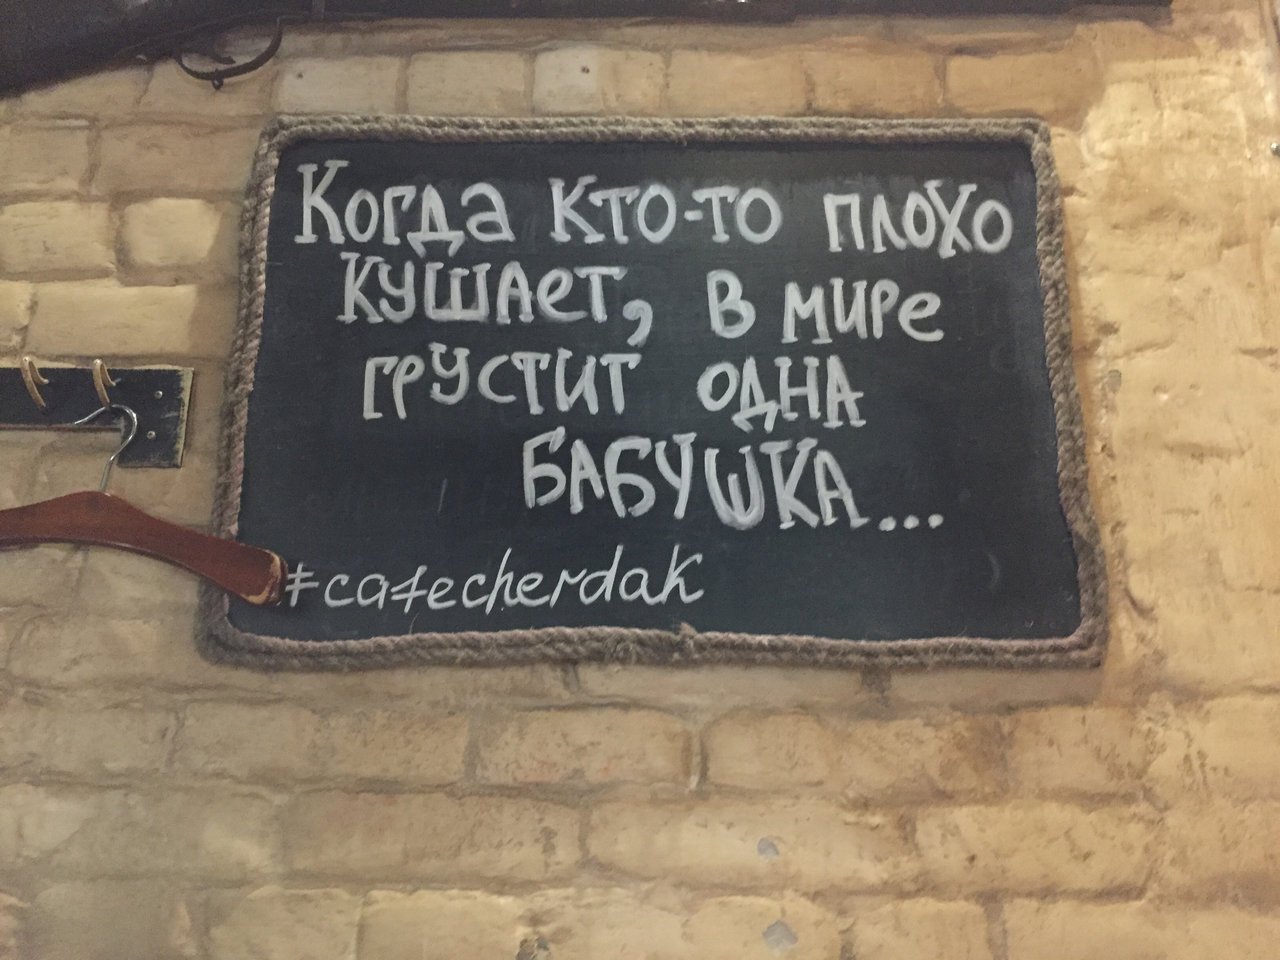 Когда кто-то плохо
кушает, в мире
грустит одна
бабушка...
#cafecherdak